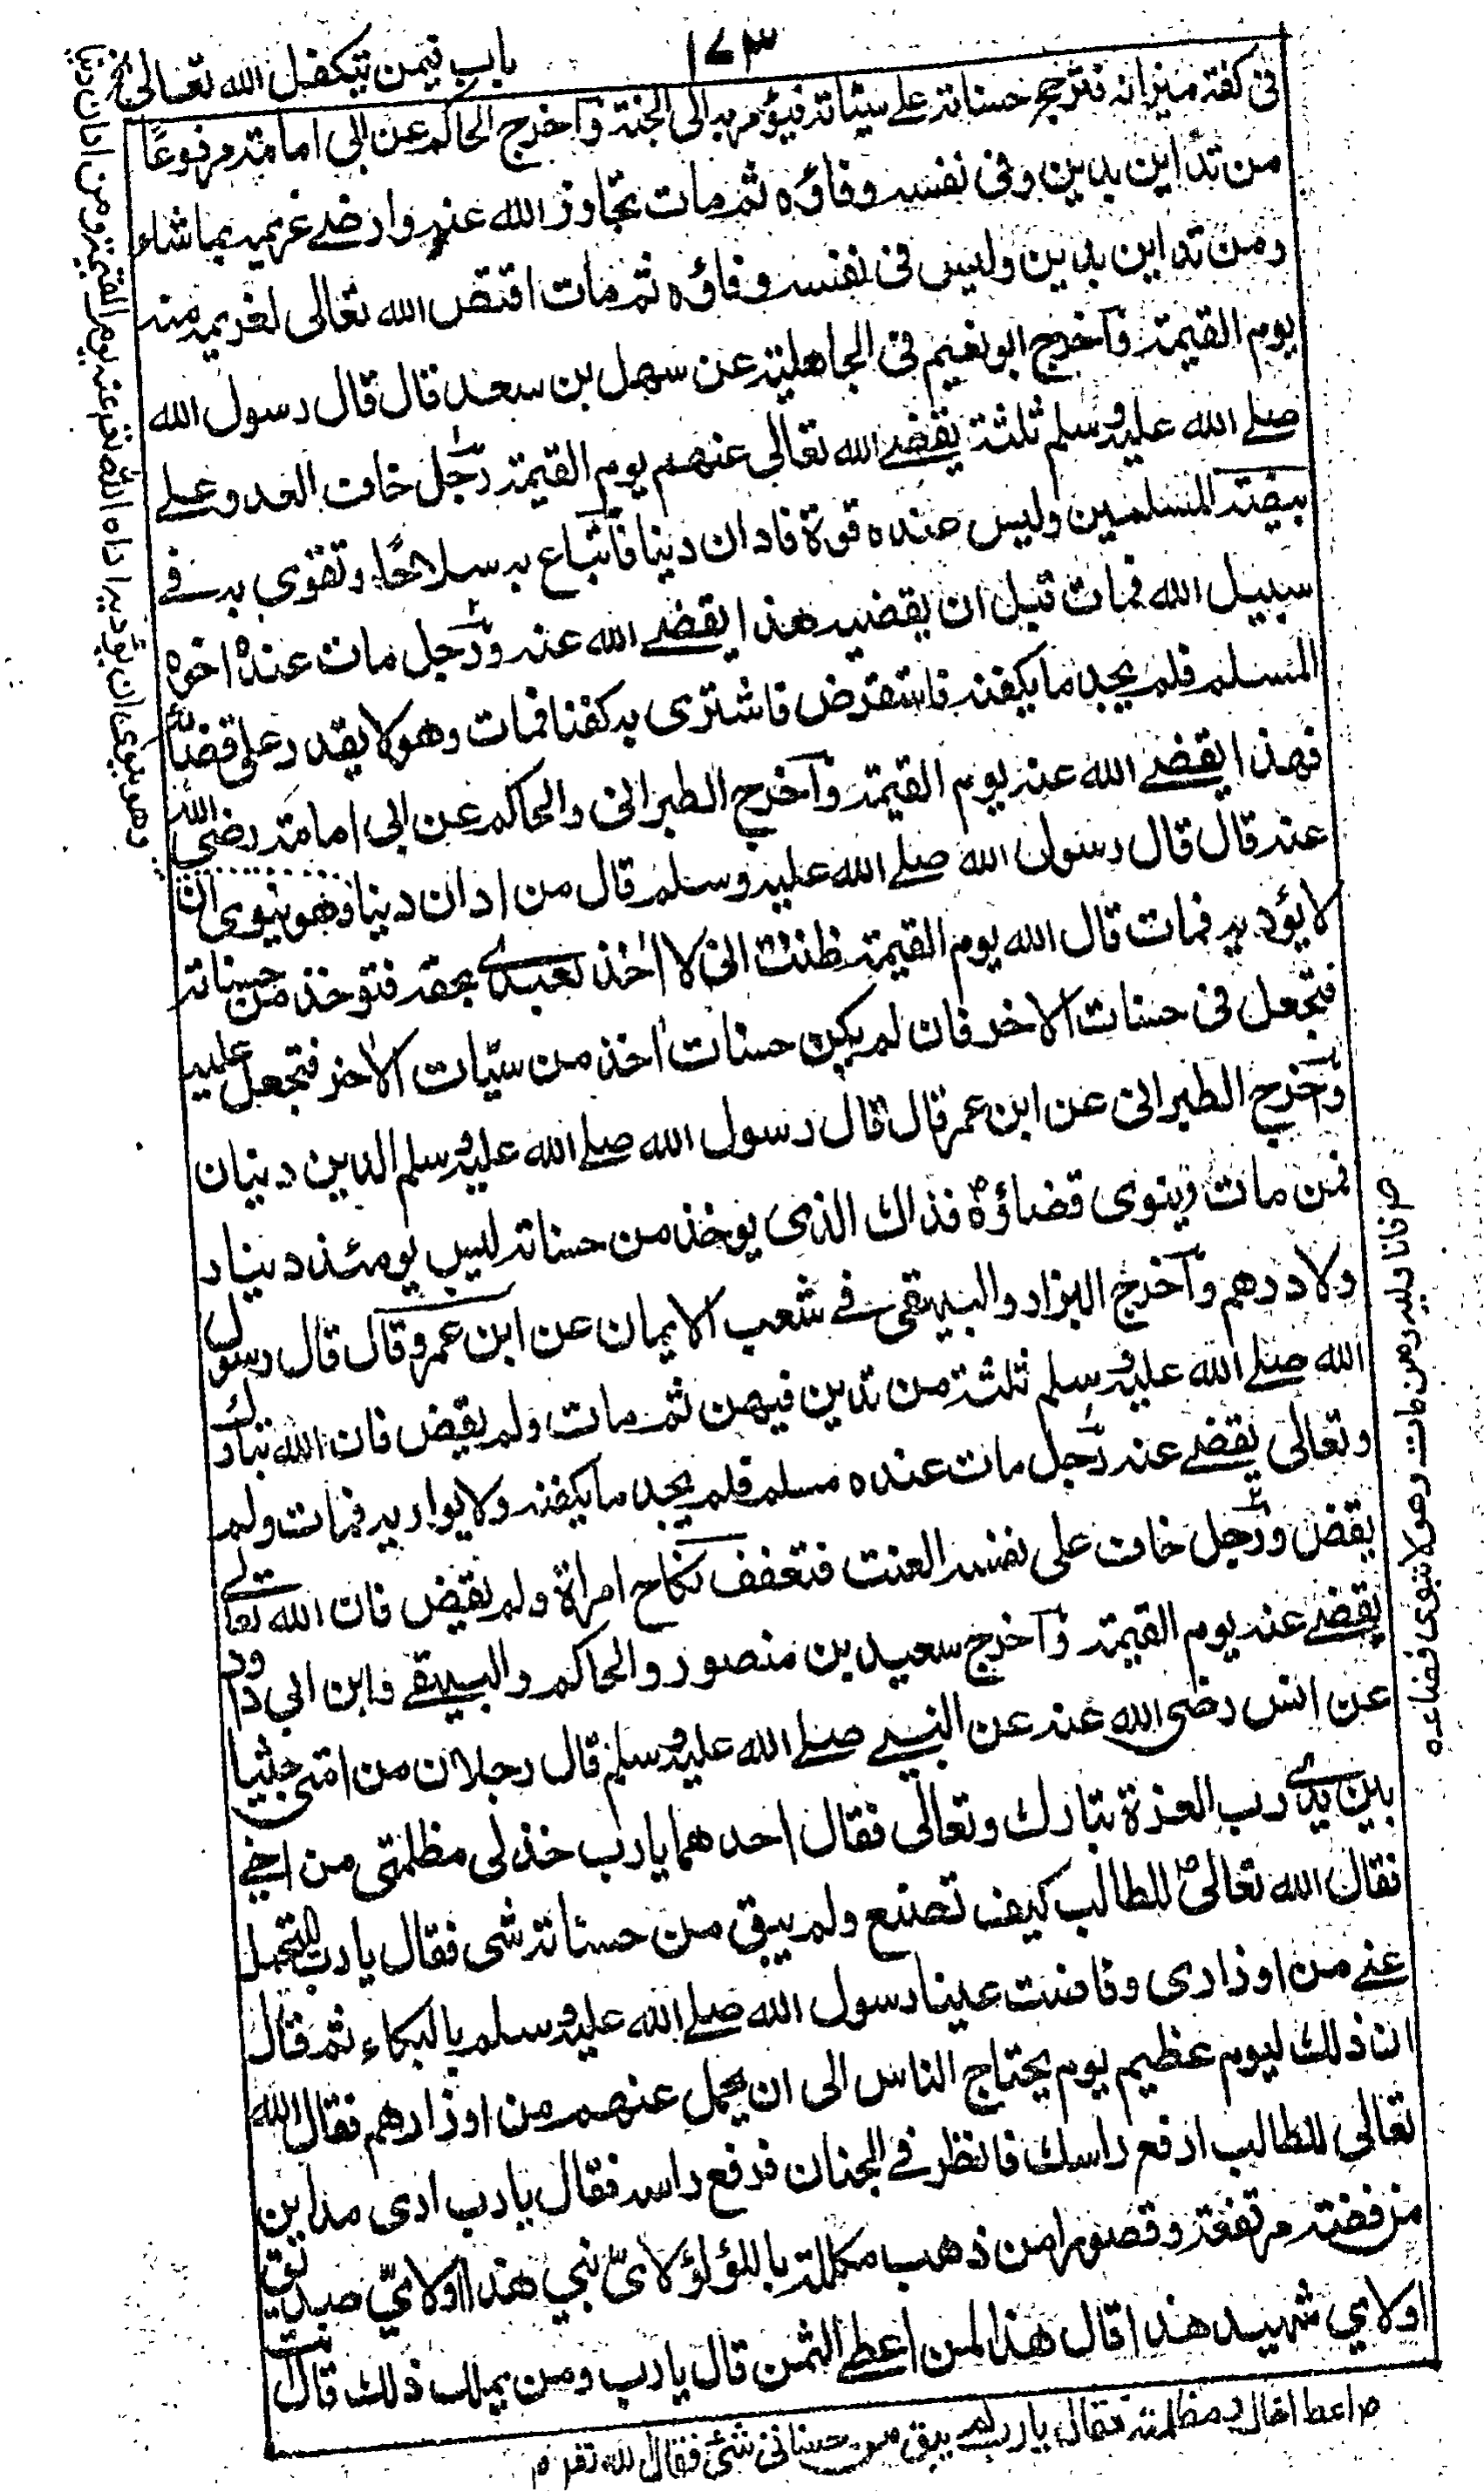 ١٧٣
باب فيمن يتكفل الله تعالى
فى كفة ميزانه فترجح حسناته على سيئاته فيؤمر به الى الجنة وآخرج الحاكم عن ابى امامة مرفوعًا
من تداين بدين وفى نفسه وفاؤه ثم مات تجاوز الله عنه وارضے غريمه بماشاء
ومن تداين بدين وليس فى نفسه وفاؤه ثم مات اقتص الله تعالى لغريمه منه
يوم القيمة وآخرج ابو نعيم فى الجاهلية عن سهل بن سعد قال قال رسول الله
صلے الله عليه وسلم ثلثة يقضے الله تعالى عنهم يوم القيمة رجل خاف العدو علے
بيضة المسلمين وليس عنده قوة فادان دينا فابتاع به سلاحًا وتقوى به فے
سبيل الله فمات قبل ان يقضيه هذا يقضے الله عنه ورجل مات عنده اخوه
المسلم فلم يجد مايكفنه فاستقرض فاشترى به كفنا فمات وهو لايقدر على قضائه
فهذا يقضے الله عنه يوم القيمة وآخرج الطبرانى والحاكم عن ابى امامة رضى الله
عنه قال قال رسول الله صلے الله عليه وسلم قال من ادان دينا وهو ينوى ان
لا يؤديه فمات قال الله يوم القيمة ظننت انى لا اخذ لعبدے بحقه فتوخذ من حسناته
فتجعل فى حسنات الاخر فان لم يكن حسنات اخذ من سيّات الاخر فتجعل عليه
وآخرج الطبرانى عن ابن عمر قال قال رسول الله صلے الله عليه وسلم الدين دينان
فمن مات وينوى قضاؤه فذاك الذى يوخذ من حسناته ليس يومئذ دينار
ولا درهم وآخرج البزار والبيهقى فے شعب الايمان عن ابن عمرو قال قال رسول
الله صلے الله عليه وسلم ثلثة من تدين فيهن ثم مات ولم يقض فان الله تبارك
وتعالى يقضے عنه رجل مات عنده مسلم فلم يجد مايكفنه ولا يواريه فمات ولم
يقض ورجل خاف على نفسه العنت فتعفف نكاح امراة ولم يقض فان الله تعالے
يقضے عنه يوم القيمة وآخرج سعيد بن منصور والحاكم والبيهقے وابن ابى داود
عن انس رضى الله عنه عن النبے صلے الله عليه وسلم قال رجلان من امتى جثيا
بين يدے رب العزة تبارك وتعالى فقال احدهما يارب خذ لى مظلمتى من اخے
فقال الله تعالى للطالب كيف تصنع ولم يبق من حسناته شى فقال يارب فليتحمل
عنے من اوزارى وفاضت عينا رسول الله صلے الله عليه وسلم بالبكاء ثم قال
ان ذلك ليوم عظيم يوم يحتاج الناس الى ان يحمل عنهم من اوزارهم فقال الله
تعالى للطالب ارفع راسك فانظر فے الجنان فرفع راسه فقال يارب ارى مداين
من فضة مرتفعة وقصورا من ذهب مكللة باللؤلؤ لاىّ نبي هذا اولايّ صديق
اولاي شهيد هذا قال هذا لمن اعطے الثمن قال يارب ومن يملك ذلك قال انت
م اعط اخاك مظلمته فقال يارب لم يبق من حسناتى شئ فقال الله
فانا وليه ومن مات وهو لا ينوى قضاءه
وهو ينوى ان يؤديه اداه الله تعالى عنه يوم القيمة ومن ادان دينا